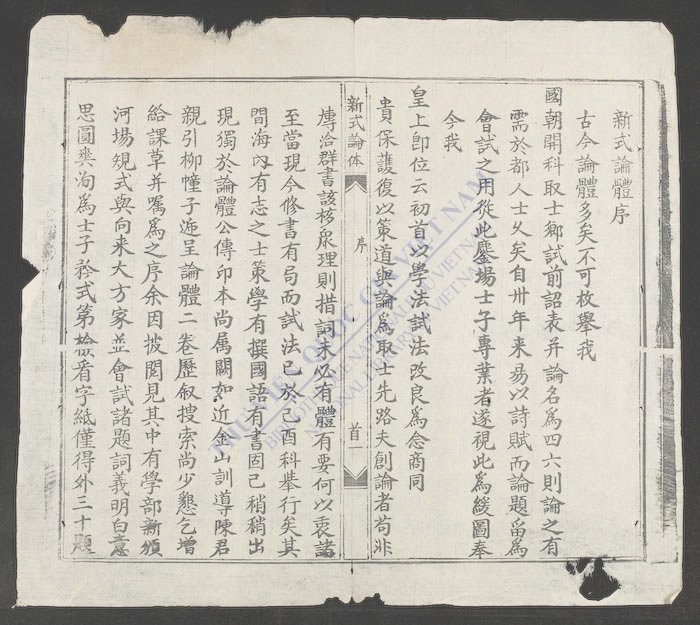 新式論體序
古今論體多矣不可枚舉我
國朝開科取士鄉試前詔表并論名爲四六則論之有
需於都人士久矣自卅年来易以詩賦而論題畱爲
會試之用從此鏖場士子專業者遂視此爲緩圖奉
今我
皇上卽位云初首以學法試法改良爲念商同
貴保護復以策道與論爲取士先路夫創論者苟非
新式論体
序
首一
慱洽群書該移衆理則措詞未必有體有要何以衷諸
至當現今修書有局而試法已於己酉科举行矣其
間海內有志之士策學有撰國語有書固已稍稍出
現獨於論體公傳印本尚属闕如近金山訓導陳君
親引柳幢子迤呈論體二卷歷叙搜索尚少懇乞增
給課草并嘱爲之序余因披閱見其中有學部新頒
河塲䂓式與向来大方家並會試諸題詞義明白意
思圓奭洵爲士子矜式第檢看字紙僅得外三十題
THƯ VIỆN QUỐC GIA VIỆT NAM
BIBLIOTHÈQUE NATIONALE DU VIETNAM
NATIONAL LIBRARY OF VIETNAM